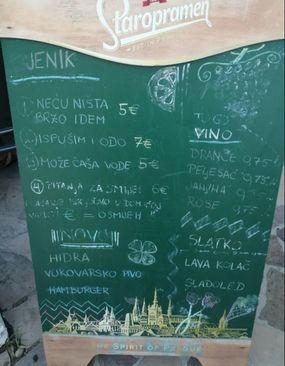 Staropramen
JENIK
1 NEĆU NIŠTA
BRZO IDEM 5€
2 ISPUŠIM I ODO 7€
3 MOŽE ČAŠA VODE 5€
4 PITANJA ZA SMIJEŠ 6€
€ = OSMIJEH
NOVO
HIDRA
VUKOVARSKO PIVO
HAMBURGER
VINO
DRANČE 0,75
PELJEŠAC 0,75
ROSE 0,75
SLATKO
LAVA KOLAČ
SLADOLED
THE SPIRIT OF PRAGUE